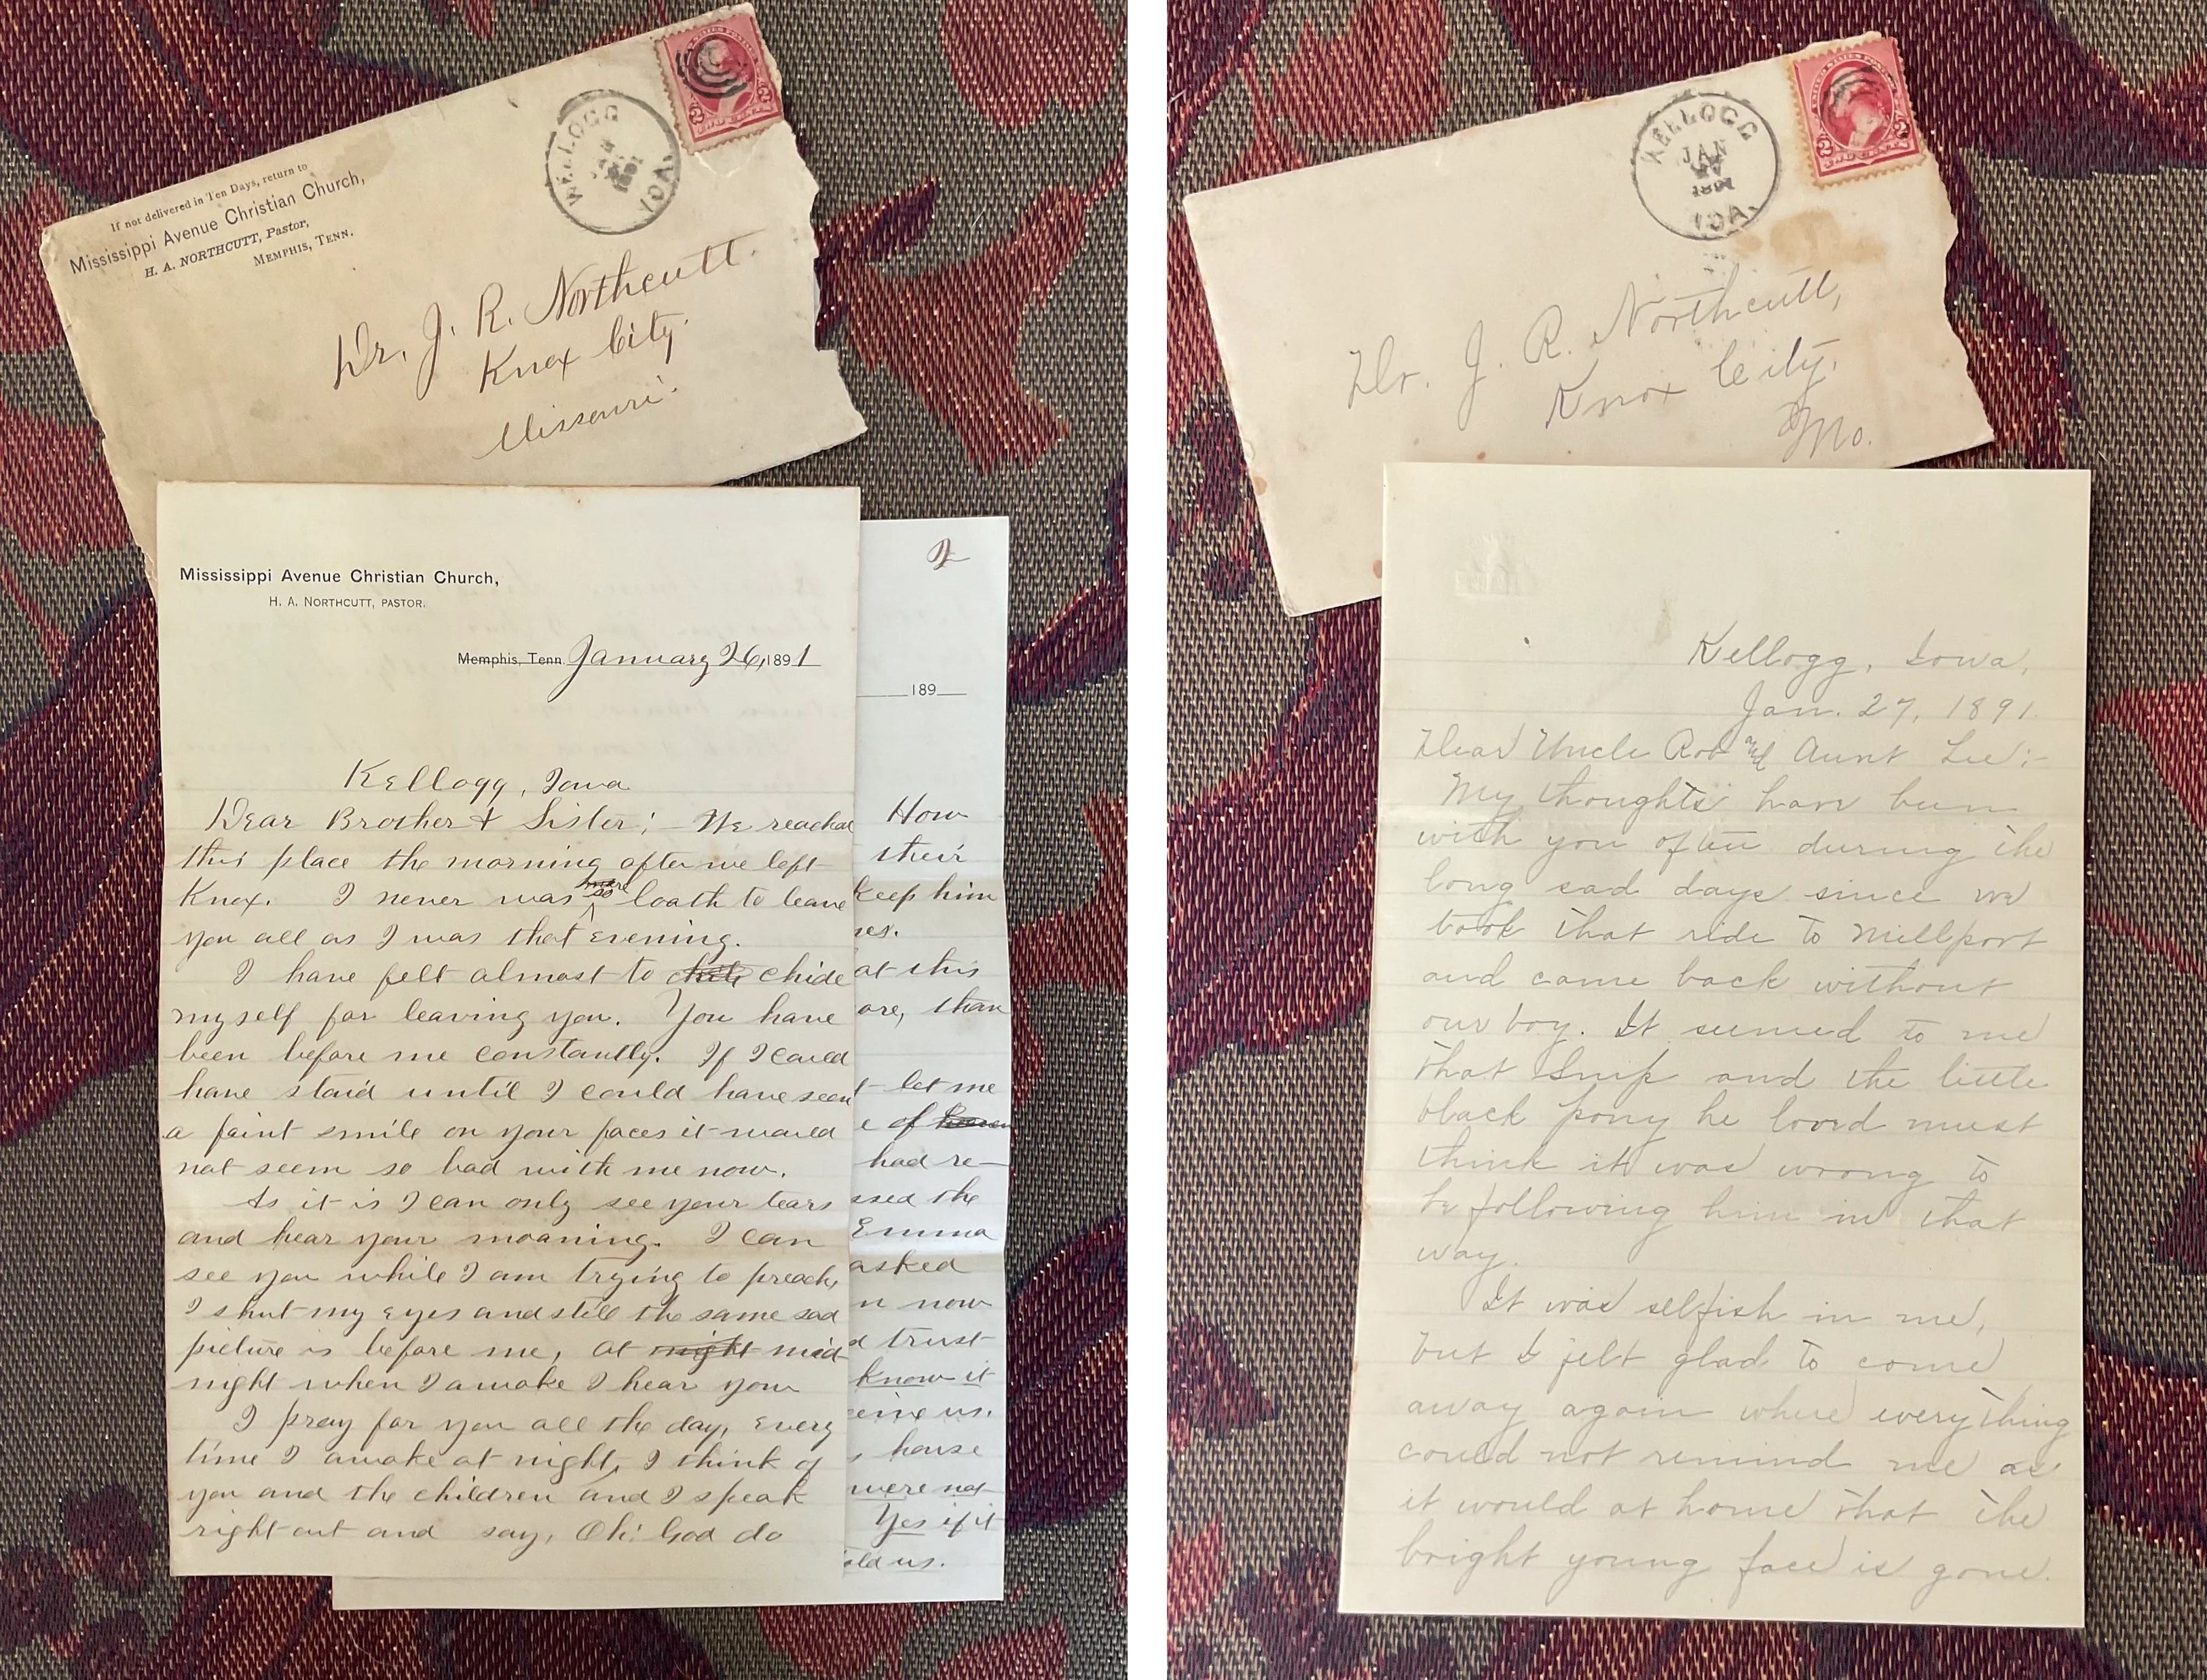 If not delivered in Ten Days, return to
Mississippi Avenue Christian Church,
H. A. NORTHCUTT, Pastor,
MEMPHIS, TENN.
KELLOGG
IOA.
2 2
TWO CENTS
Dr. J. R. Northcutt.
Knox City.
Missouri.
Mississippi Avenue Christian Church,
H. A. NORTHCUTT, PASTOR.
Memphis, Tenn. January 26, 1891
Kellogg, Iowa.
Dear Brother & Sister; - We reached
this place the morning after we left
Knox. I never was so loath to leave
you all as I was that evening.
I have felt almost to chide
myself for leaving you. You have
been before me constantly. If I could
have staid until I could have seen
a faint smile on your faces it would
not seem so bad with me now.
As it is I can only see your tears
and hear your moaning. I can
see you while I am trying to preach,
I shut my eyes and still the same sad
picture is before me, at night mid
night when I awake I hear you
I pray for you all the day, every
time I awake at night, I think of
you and the children and I speak
right out and say, Oh! God do
2
189
How
their
keep him
at this
ore, than
let me
of
had re-
ssed the
Emma
asked
n now
d trust
know it
eive us.
house
were not
Yes if it
old us.
KELLOGG
JAN
1891
IOA.
2 2
TWO CENTS
Dr. J. R. Northcutt,
Knox City,
Mo.
Kellogg, Iowa,
Jan. 27, 1891.
Dear Uncle Rob and Aunt Lee; -
My thoughts have been
with you often during the
long sad days since we
took that ride to Millport
and came back without
our boy. It seemed to me
that Snip and the little
black pony he loved must
think it was wrong to
be following him in that
way.
It was selfish in me,
but I felt glad to come
away again where everything
could not remind me as
it would at home that the
bright young face is gone.